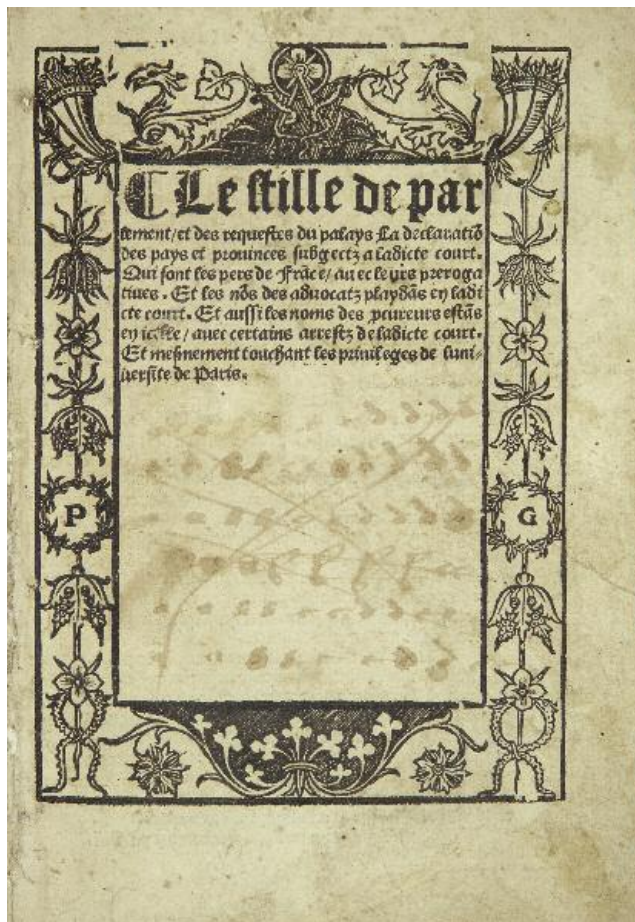 ¶ Le stille de par
lement/et des requestes du palays La declaratiõ
des pays et prouinces subgectz a ladicte court.
Qui sont les pers de Frãce/auec leurs preroga
tiues. Et les nõs des aduocatz playdãs en ladi
cte court. Et aussi les noms des ꝓcureurs estãs
en icelle/auec certains arrestz de ladicte court.
Et mesmement touchant les priuileges de luni-
uersite de Paris.
P
G